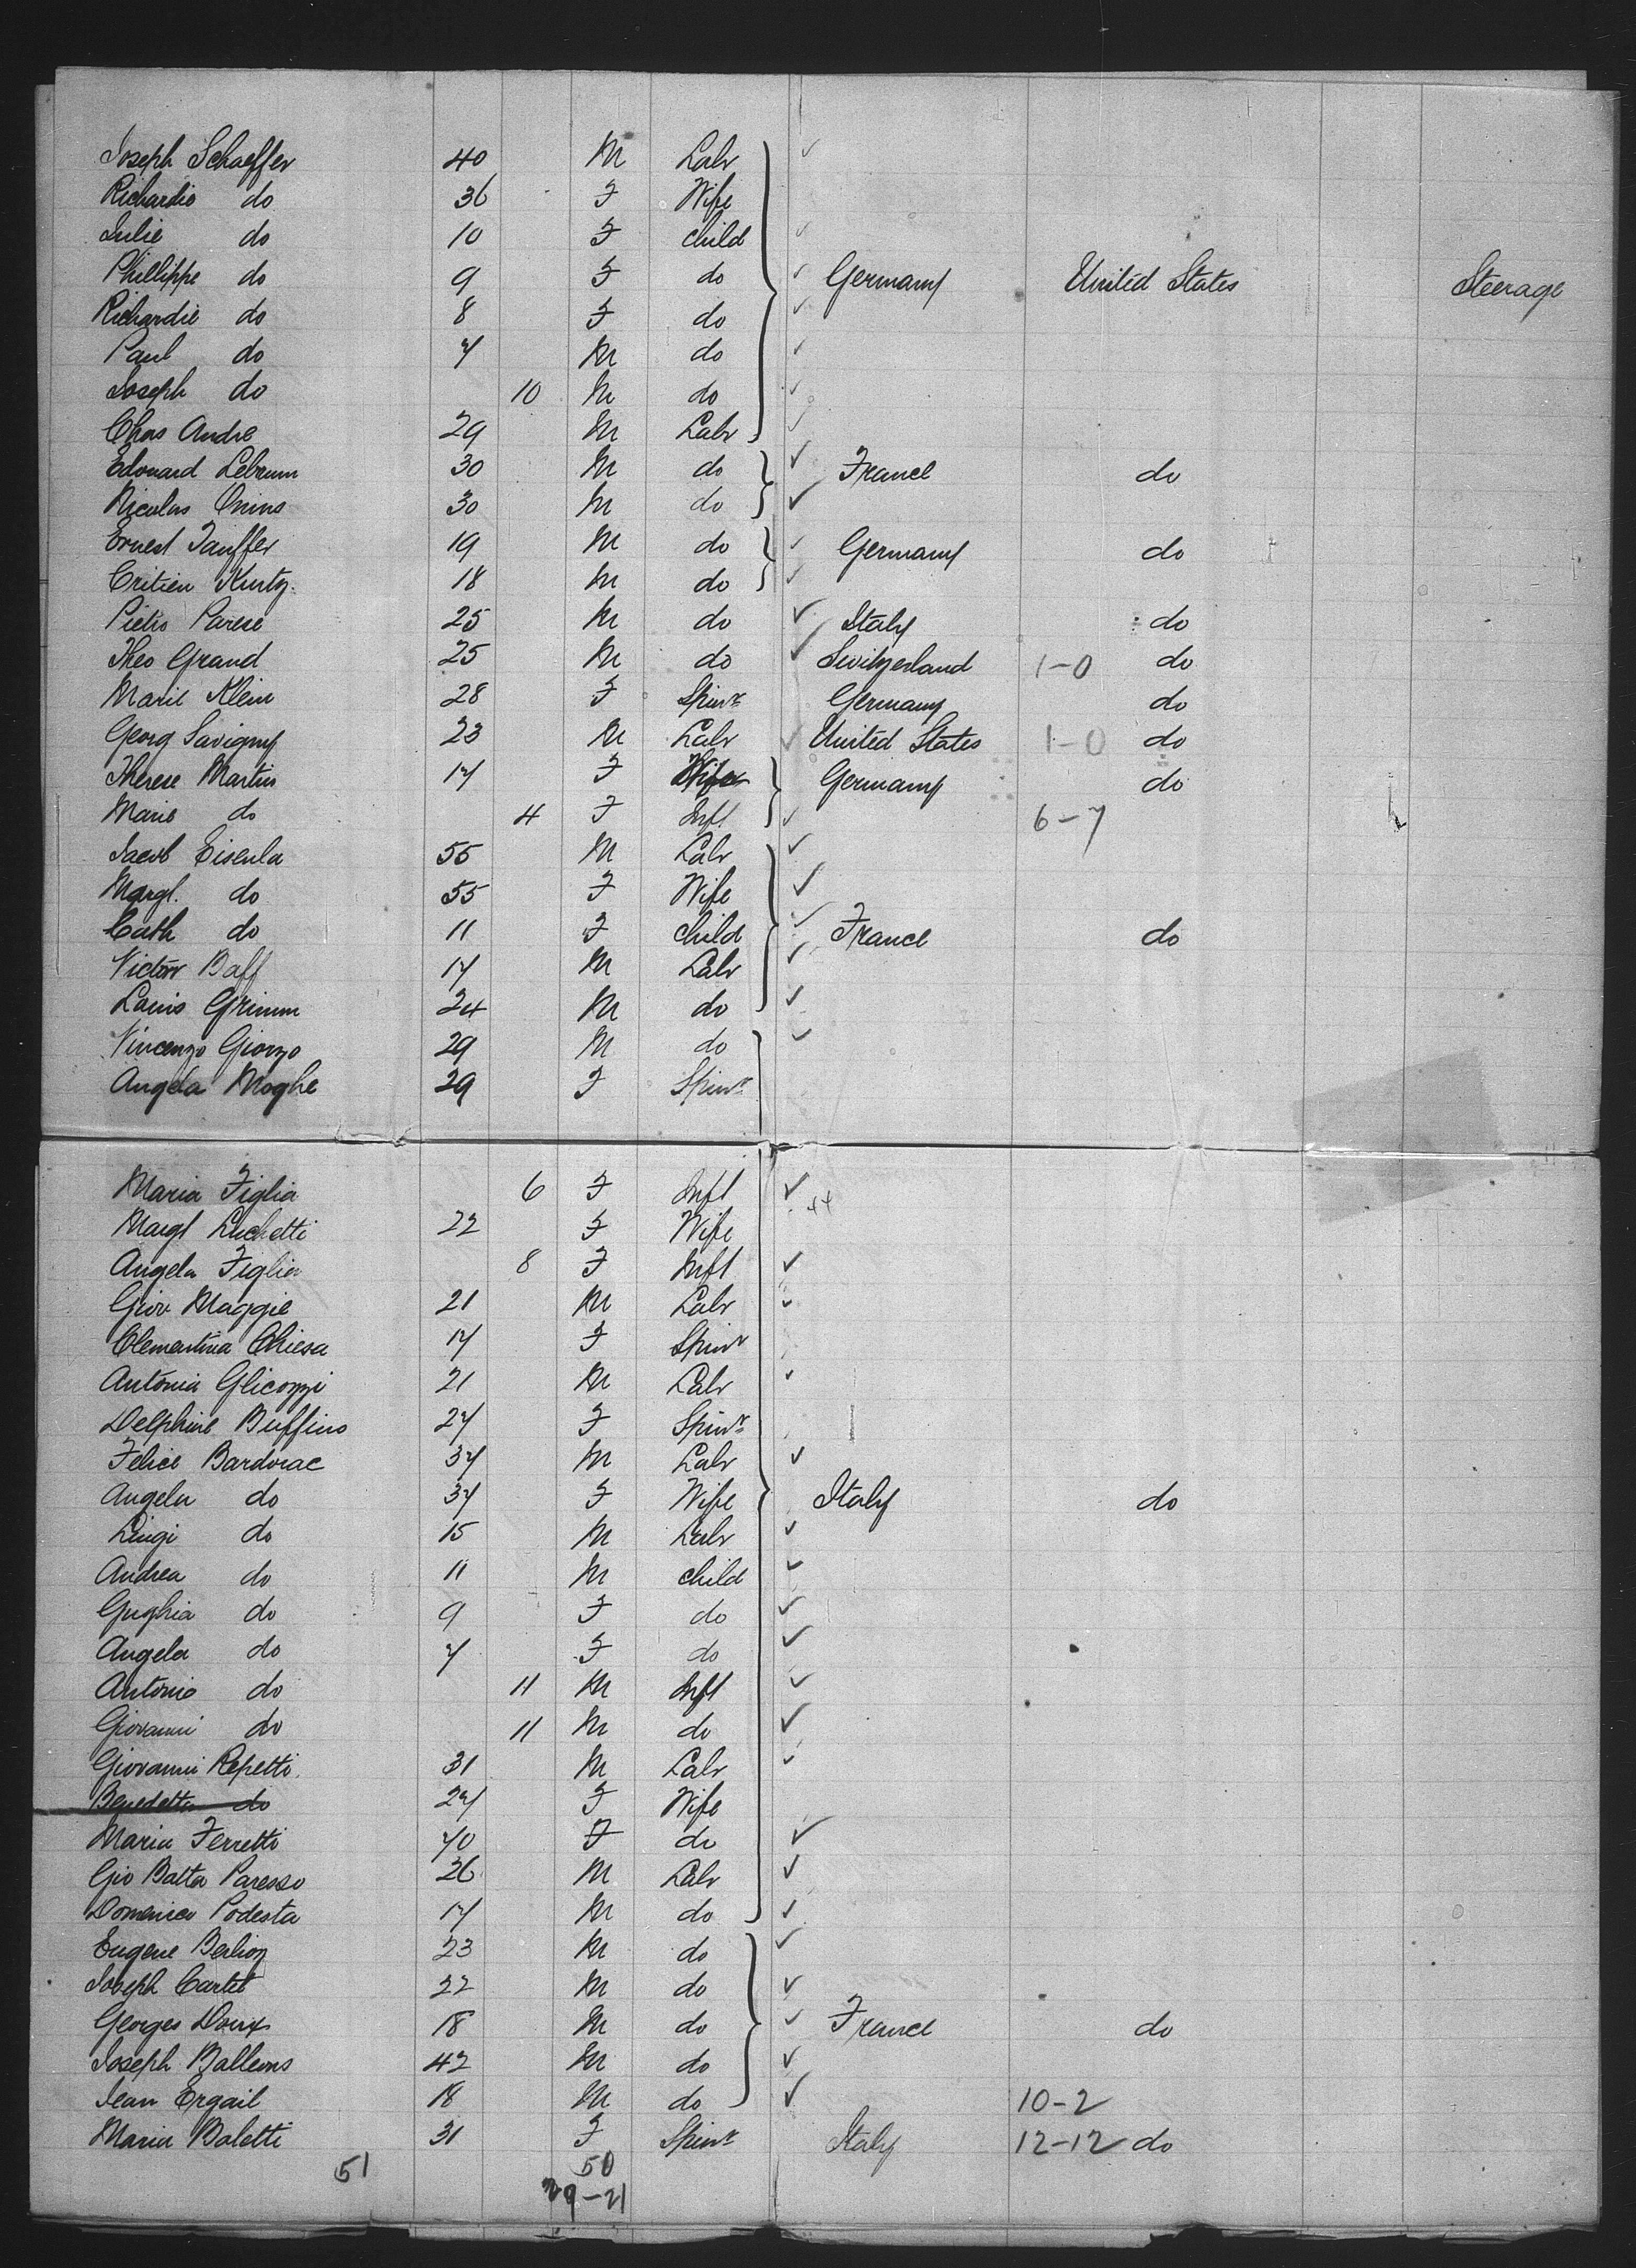 Joseph Schaeffer 40 M Labr
Richardie do 36 F Wife
Julie do 10 F child
Phillippe do 9 F do Germany United States Steerage
Richardie do 8 F do
Paul do 7 M do
Joseph do 10 M do
Chas Andre 29 M Labr
Edouard Lebrun 30 M do France do
Nicolas 30 M do
Ernest Tauffer 19 M do Germany do
Critien Kurtz 18 M do
Pietro Parese 25 M do Italy do
Theo Grand 25 M do Switzerland 1-0 do
Marie Klein 28 F Spinr Germany do
Georg Savigny 23 M Labr United States 1-0 do
Therese Martin 17 F Wife Germany do
Marie do 4 F Inft 6-7
Jacob Eisenla 55 M Labr
Margt. do 55 F Wife
Cath do 11 F child France do
Victor Baff 17 M Labr
Louis Grimm 24 M do
Vincenzo Giorzo 29 M do
Angela Moghe 29 F Spinr
Maria Figlia 6 F Inft
44
Margt Luchetti 22 F Wife
Angela Figlia 8 F Inft
Giov Maggie 21 M Labr
Clementina Chiesa 17 F Spinr
Antonia Glicozzi 21 M Labr
Delphine Buffino 27 F Spinr
Felice Bardorac 37 M Labr
Angela do 37 F Wife Italy do
Luigi do 15 M Labr
Andrea do 11 M child
Gughia do 9 F do
Angela do 7 F do
Antonio do 11 M Inft
Giovanni do 11 M do
Giovanni Repetti 31 M Labr
Benedetta do 27 F Wife
Maria Ferretti 40 F do
Gio Batta Paresso 26 M Labr
Domenico Podesta 17 M do
Eugene Berlioz 23 M do
Joseph Cartet 22 M do
Georges Doux 18 M do France do
Joseph Balleons 42 M do
Jean Ergail 18 M do 10-2
Maria Boletti 31 F Spinr Italy 12-12 do
51 50
29-21